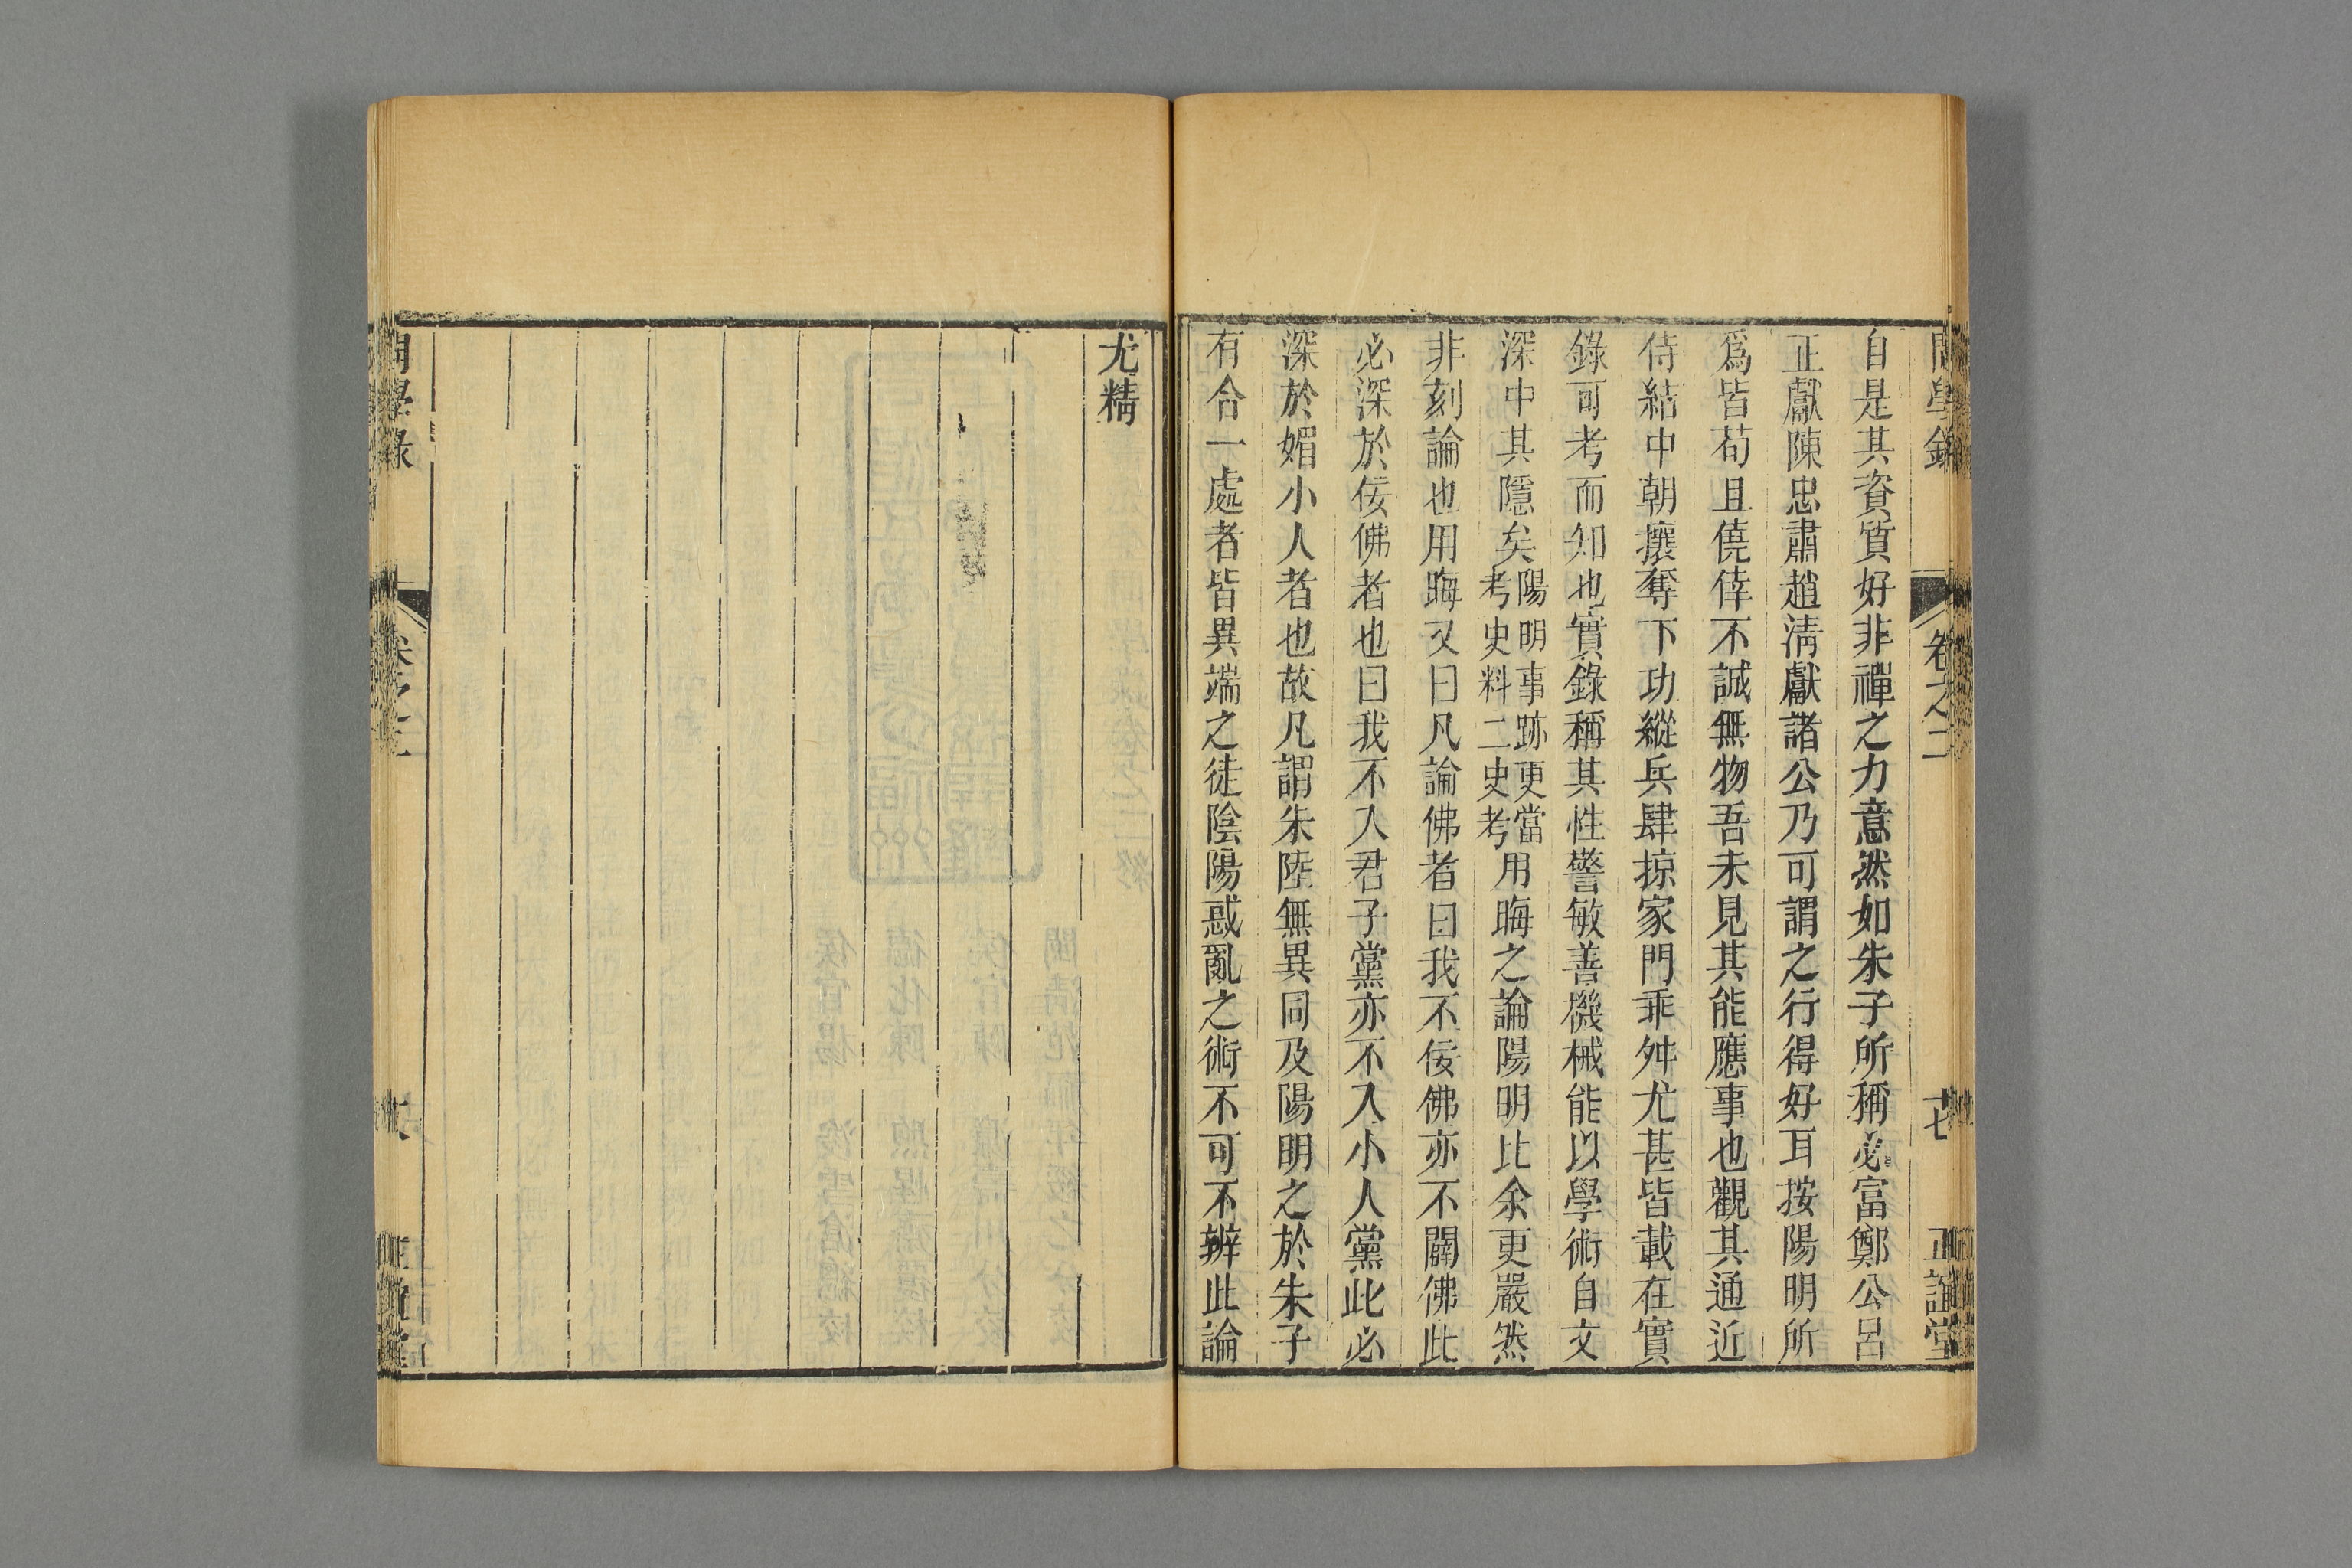 問學錄 卷之二 十七 正誼堂
自是其資質好非禪之力意然如朱子所稱必富鄭公呂
正獻陳忠肅趙淸獻諸公乃可謂之行得好耳按陽明所
爲皆苟且僥倖不誠無物吾未見其能應事也觀其通近
侍結中朝攘奪下功縱兵肆掠家門乖舛尤甚皆載在實
錄可考而知也實錄稱其性警敏善機械能以學術自文
深中其隱矣陽明事跡更當考史料二史考用晦之論陽明比余更嚴然
非刻論也用晦又曰凡論佛者曰我不佞佛亦不闢佛此
必深於佞佛者也曰我不入君子黨亦不入小人黨此必
深於媚小人者也故凡謂朱陸無異同及陽明之於朱子
有合一處者皆異端之徒陰陽惑亂之術不可不辨此論
尤精
問學錄 卷之二 正誼堂